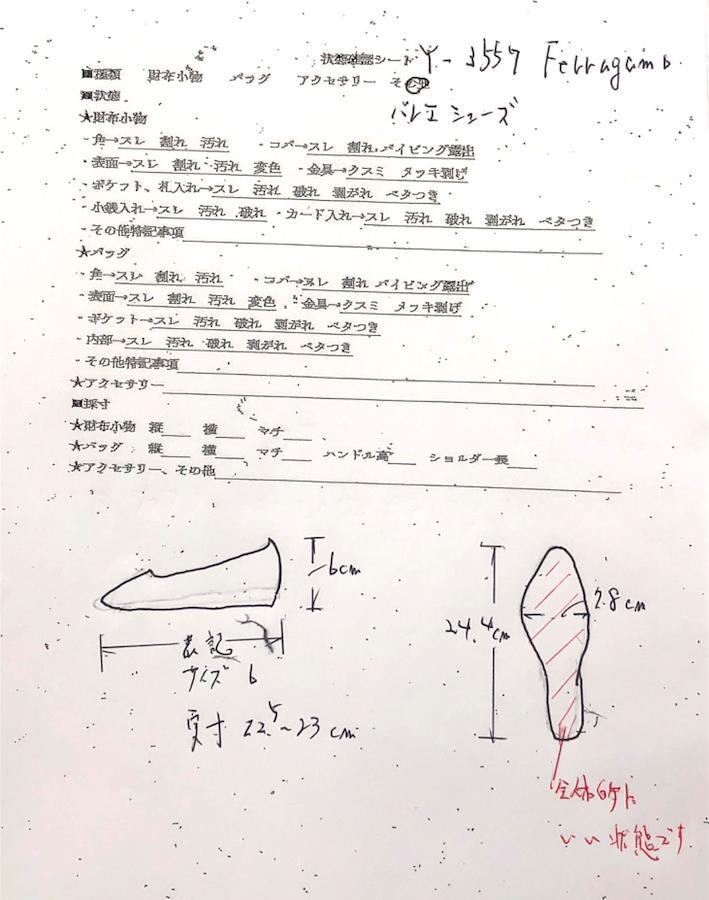 状態確認シート Y-3557 Ferragamo
■種類 財布小物 バッグ アクセサリー その他
バレエシューズ
■状態
★財布小物
・角→スレ 割れ 汚れ ・コバ→スレ 割れ パイピング露出
・表面→スレ 割れ 汚れ 変色 ・金具→クスミ メッキ剥げ
・ポケット、札入れ→スレ 汚れ 破れ 剥がれ ベタつき
・小銭入れ→スレ 汚れ 破れ ・カード入れ→スレ 汚れ 破れ 剥がれ ベタつき
・その他特記事項
★バッグ
・角→スレ 割れ 汚れ ・コバ→スレ 割れ パイピング露出
・表面→スレ 割れ 汚れ 変色 ・金具→クスミ メッキ剥げ
・ポケット→スレ 汚れ 破れ 剥がれ ベタつき
・内部→スレ 汚れ 破れ 剥がれ ベタつき
・その他特記事項
★アクセサリー
■採寸
★財布小物 縦 横 マチ
★バッグ 縦 横 マチ ハンドル高 ショルダー長
★アクセサリー、その他
6cm
表記
サイズ 6
実寸 22.5~23cm
24.4cm
7.8cm
全体的に
いい状態です